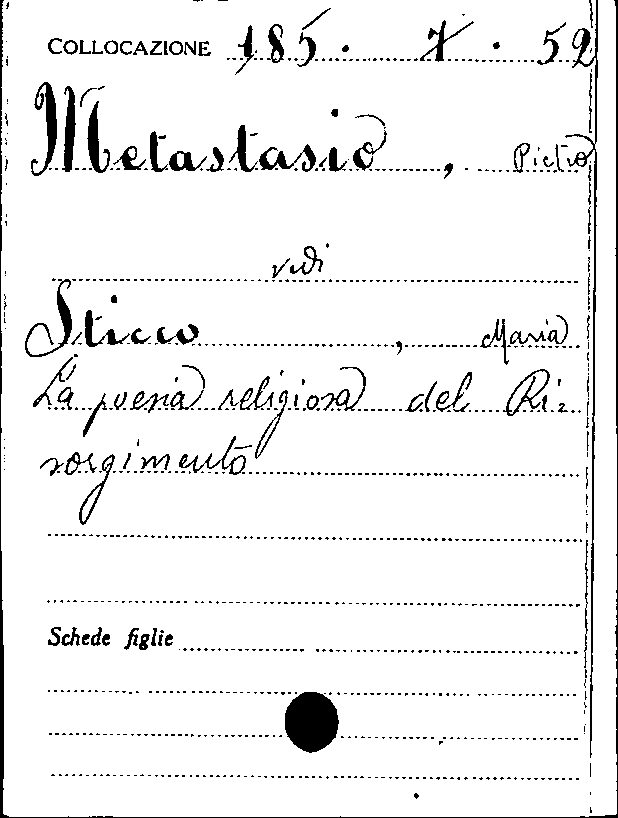 COLLOCAZIONE 185. 7. 52
Metastasio, Pietro
vedi
Sticco, Maria
La poesia religiosa del Ri=
sorgimento
Schede figlie